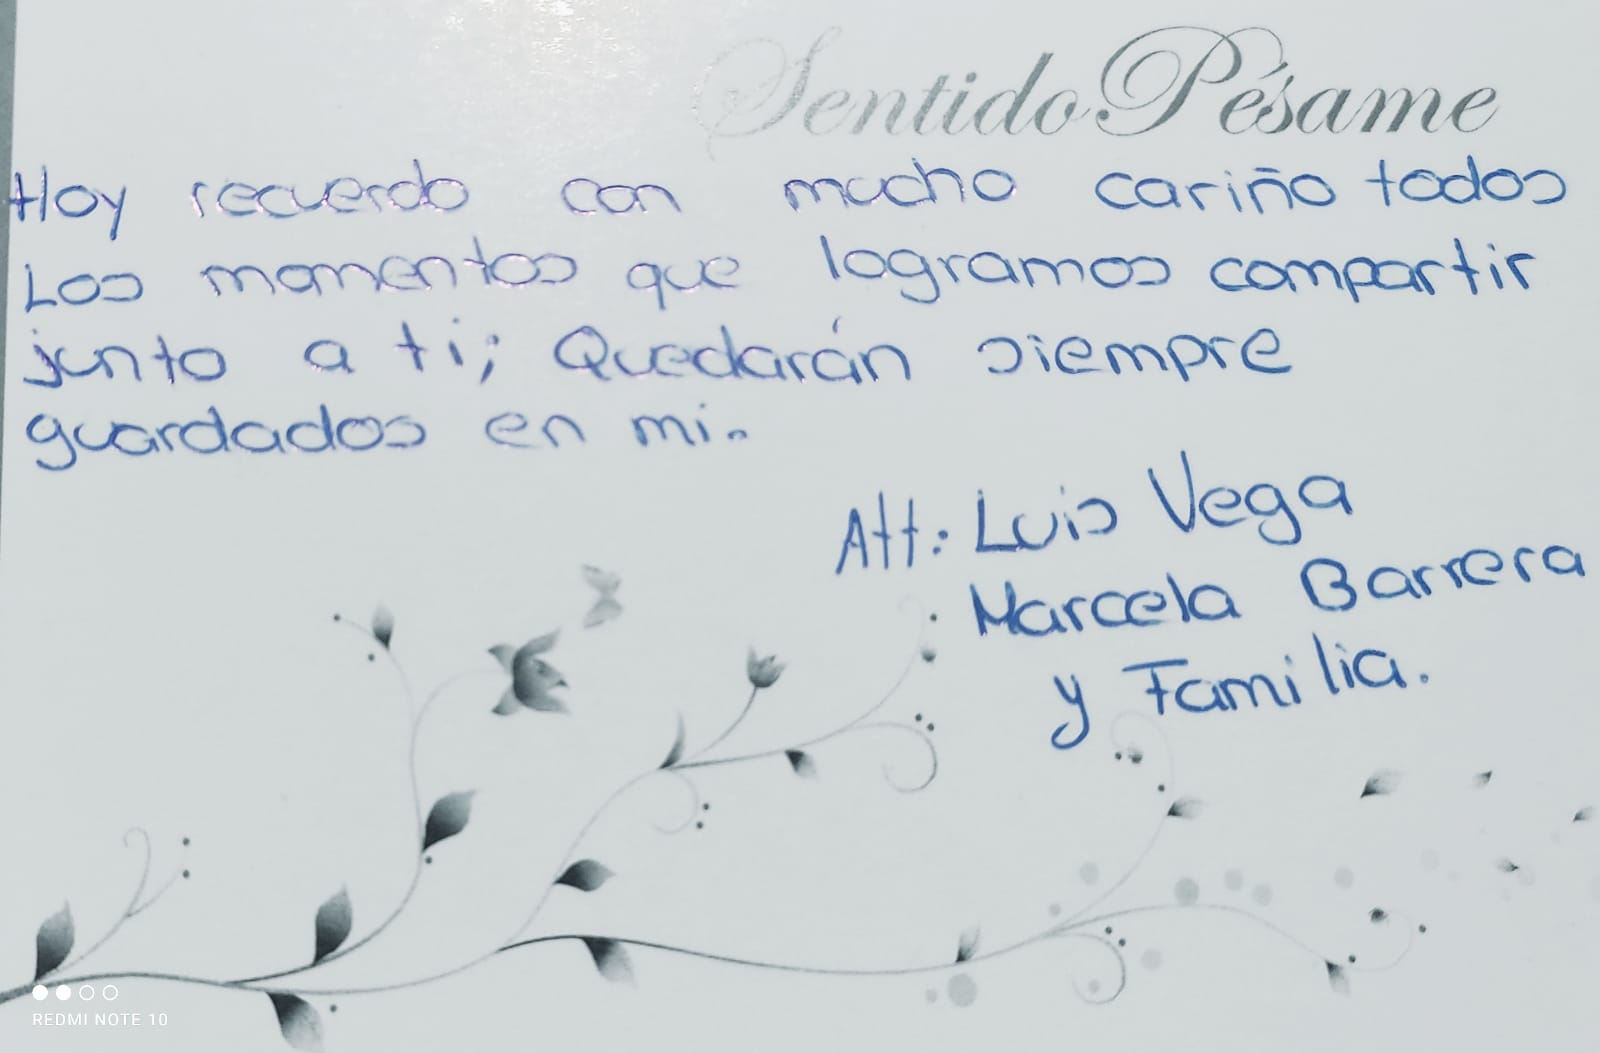 Sentido Pésame
Hoy recuerdo con mucho cariño todos
Los momentos que logramos compartir
junto a ti; Quedarán siempre
guardados en mi.
Att: Luis Vega
Marcela Barrera
y Familia.
REDMI NOTE 10